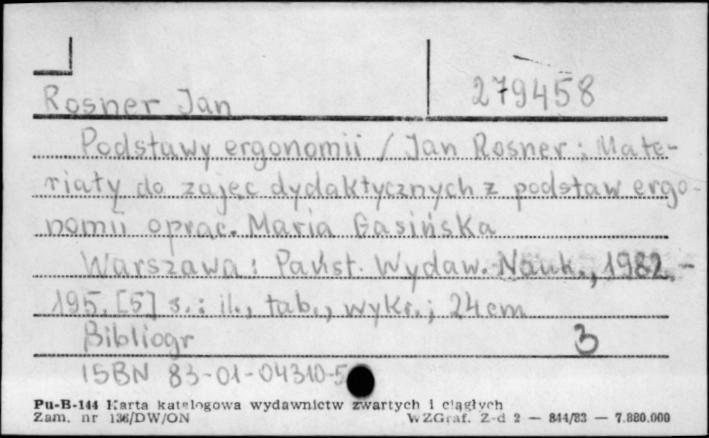 279458
Rosner Jan
Podstawy ergonomii / Jan Rosner ; Mate-
riały do zajęć dydaktycznych z podstaw ergo-
nomii oprac. Maria Gasińska
Warszawa : Państ. Wydaw. Nauk., 1982. -
195, [5] s. : il., tab., wykr. ; 24 cm
Bibliogr
3
ISBN 83-01-04310-5
Pu-B-144 Karta katalogowa wydawnictw zwartych i ciągłych
Zam. nr 136/DW/ON WZGraf. Z-d 2 — 844/83 — 7.880.000